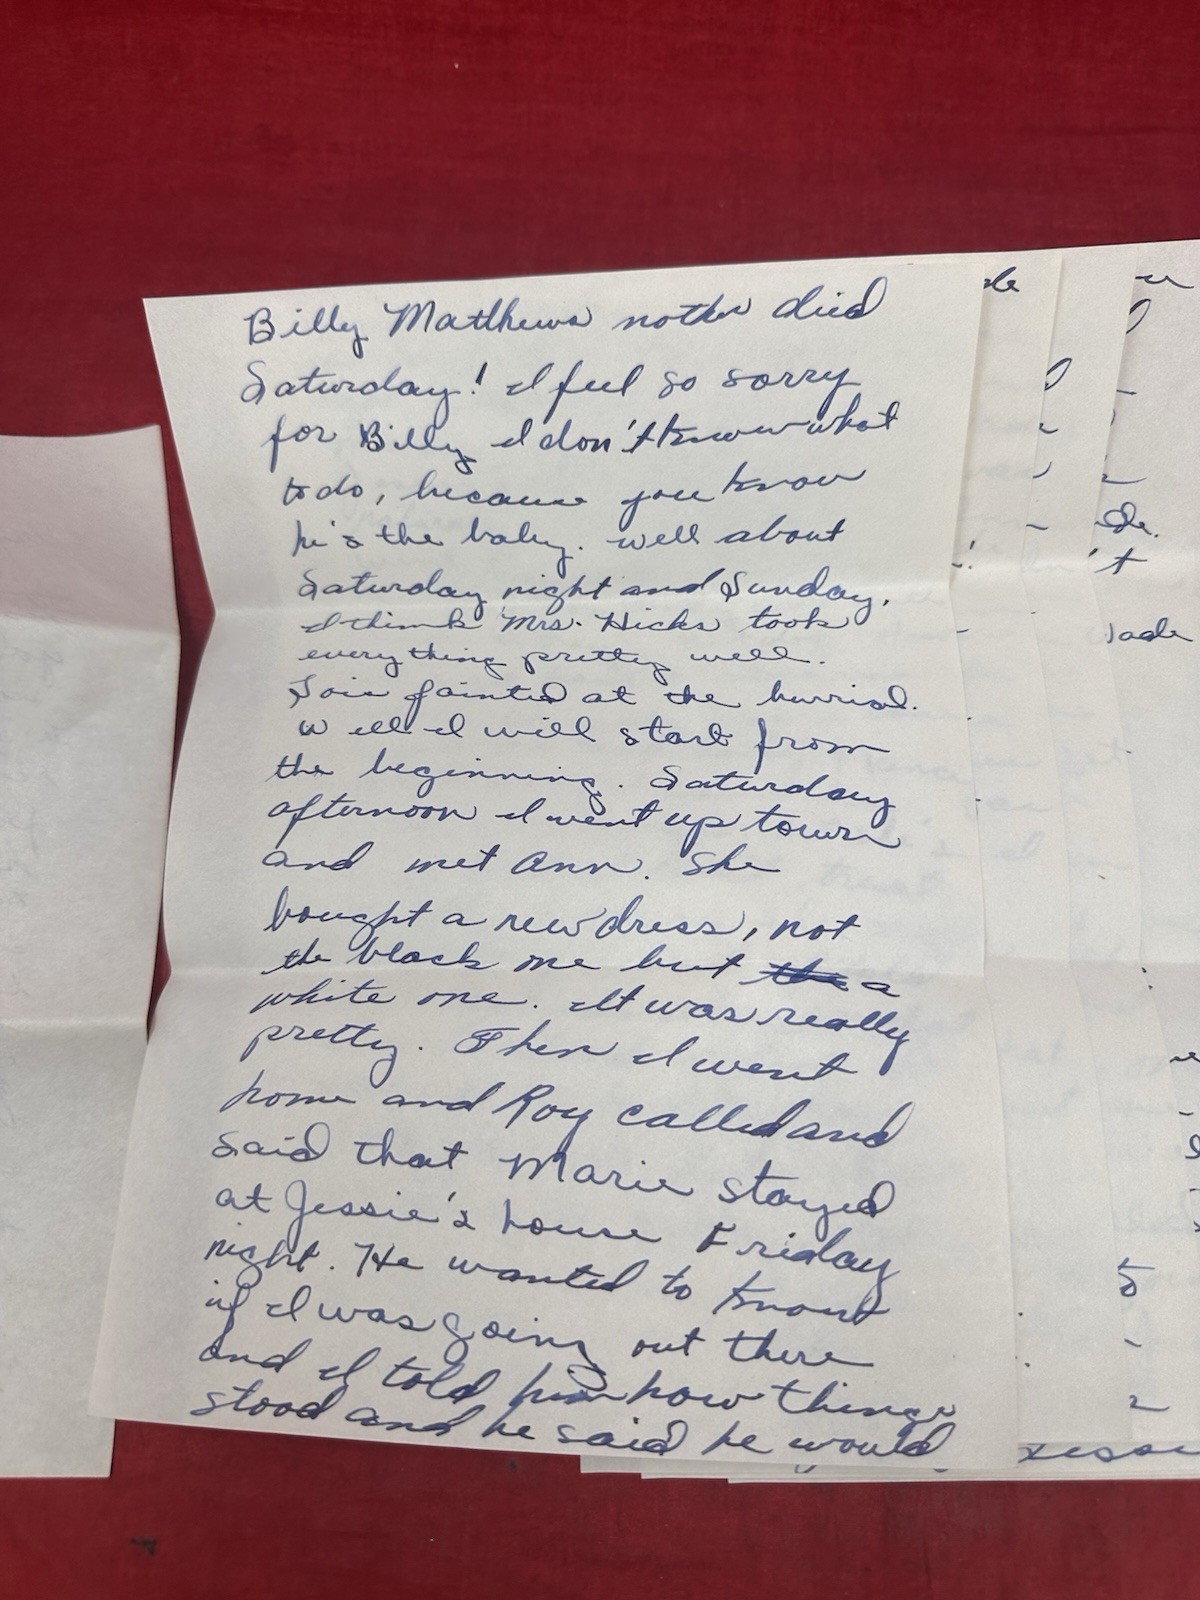 Billy Matthews nother died
Saturday! I feel so sorry
for Billy I don't know what
to do, because you know
he's the baby. Well about
Saturday night and Sunday,
I think Mrs. Hicks took
everything pretty well.
Jois fainted at the burrial.
Well I will start from
the beginning. Saturday
afternoon I went up town
and met Ann. She
bought a new dress, not
the black one but the a
white one. It was really
pretty. Then I went
home and Roy called and
said that Marie stayed
at Jessie's house Friday
night. He wanted to know
if I was going out there
and I told him how things
stood and he said he would